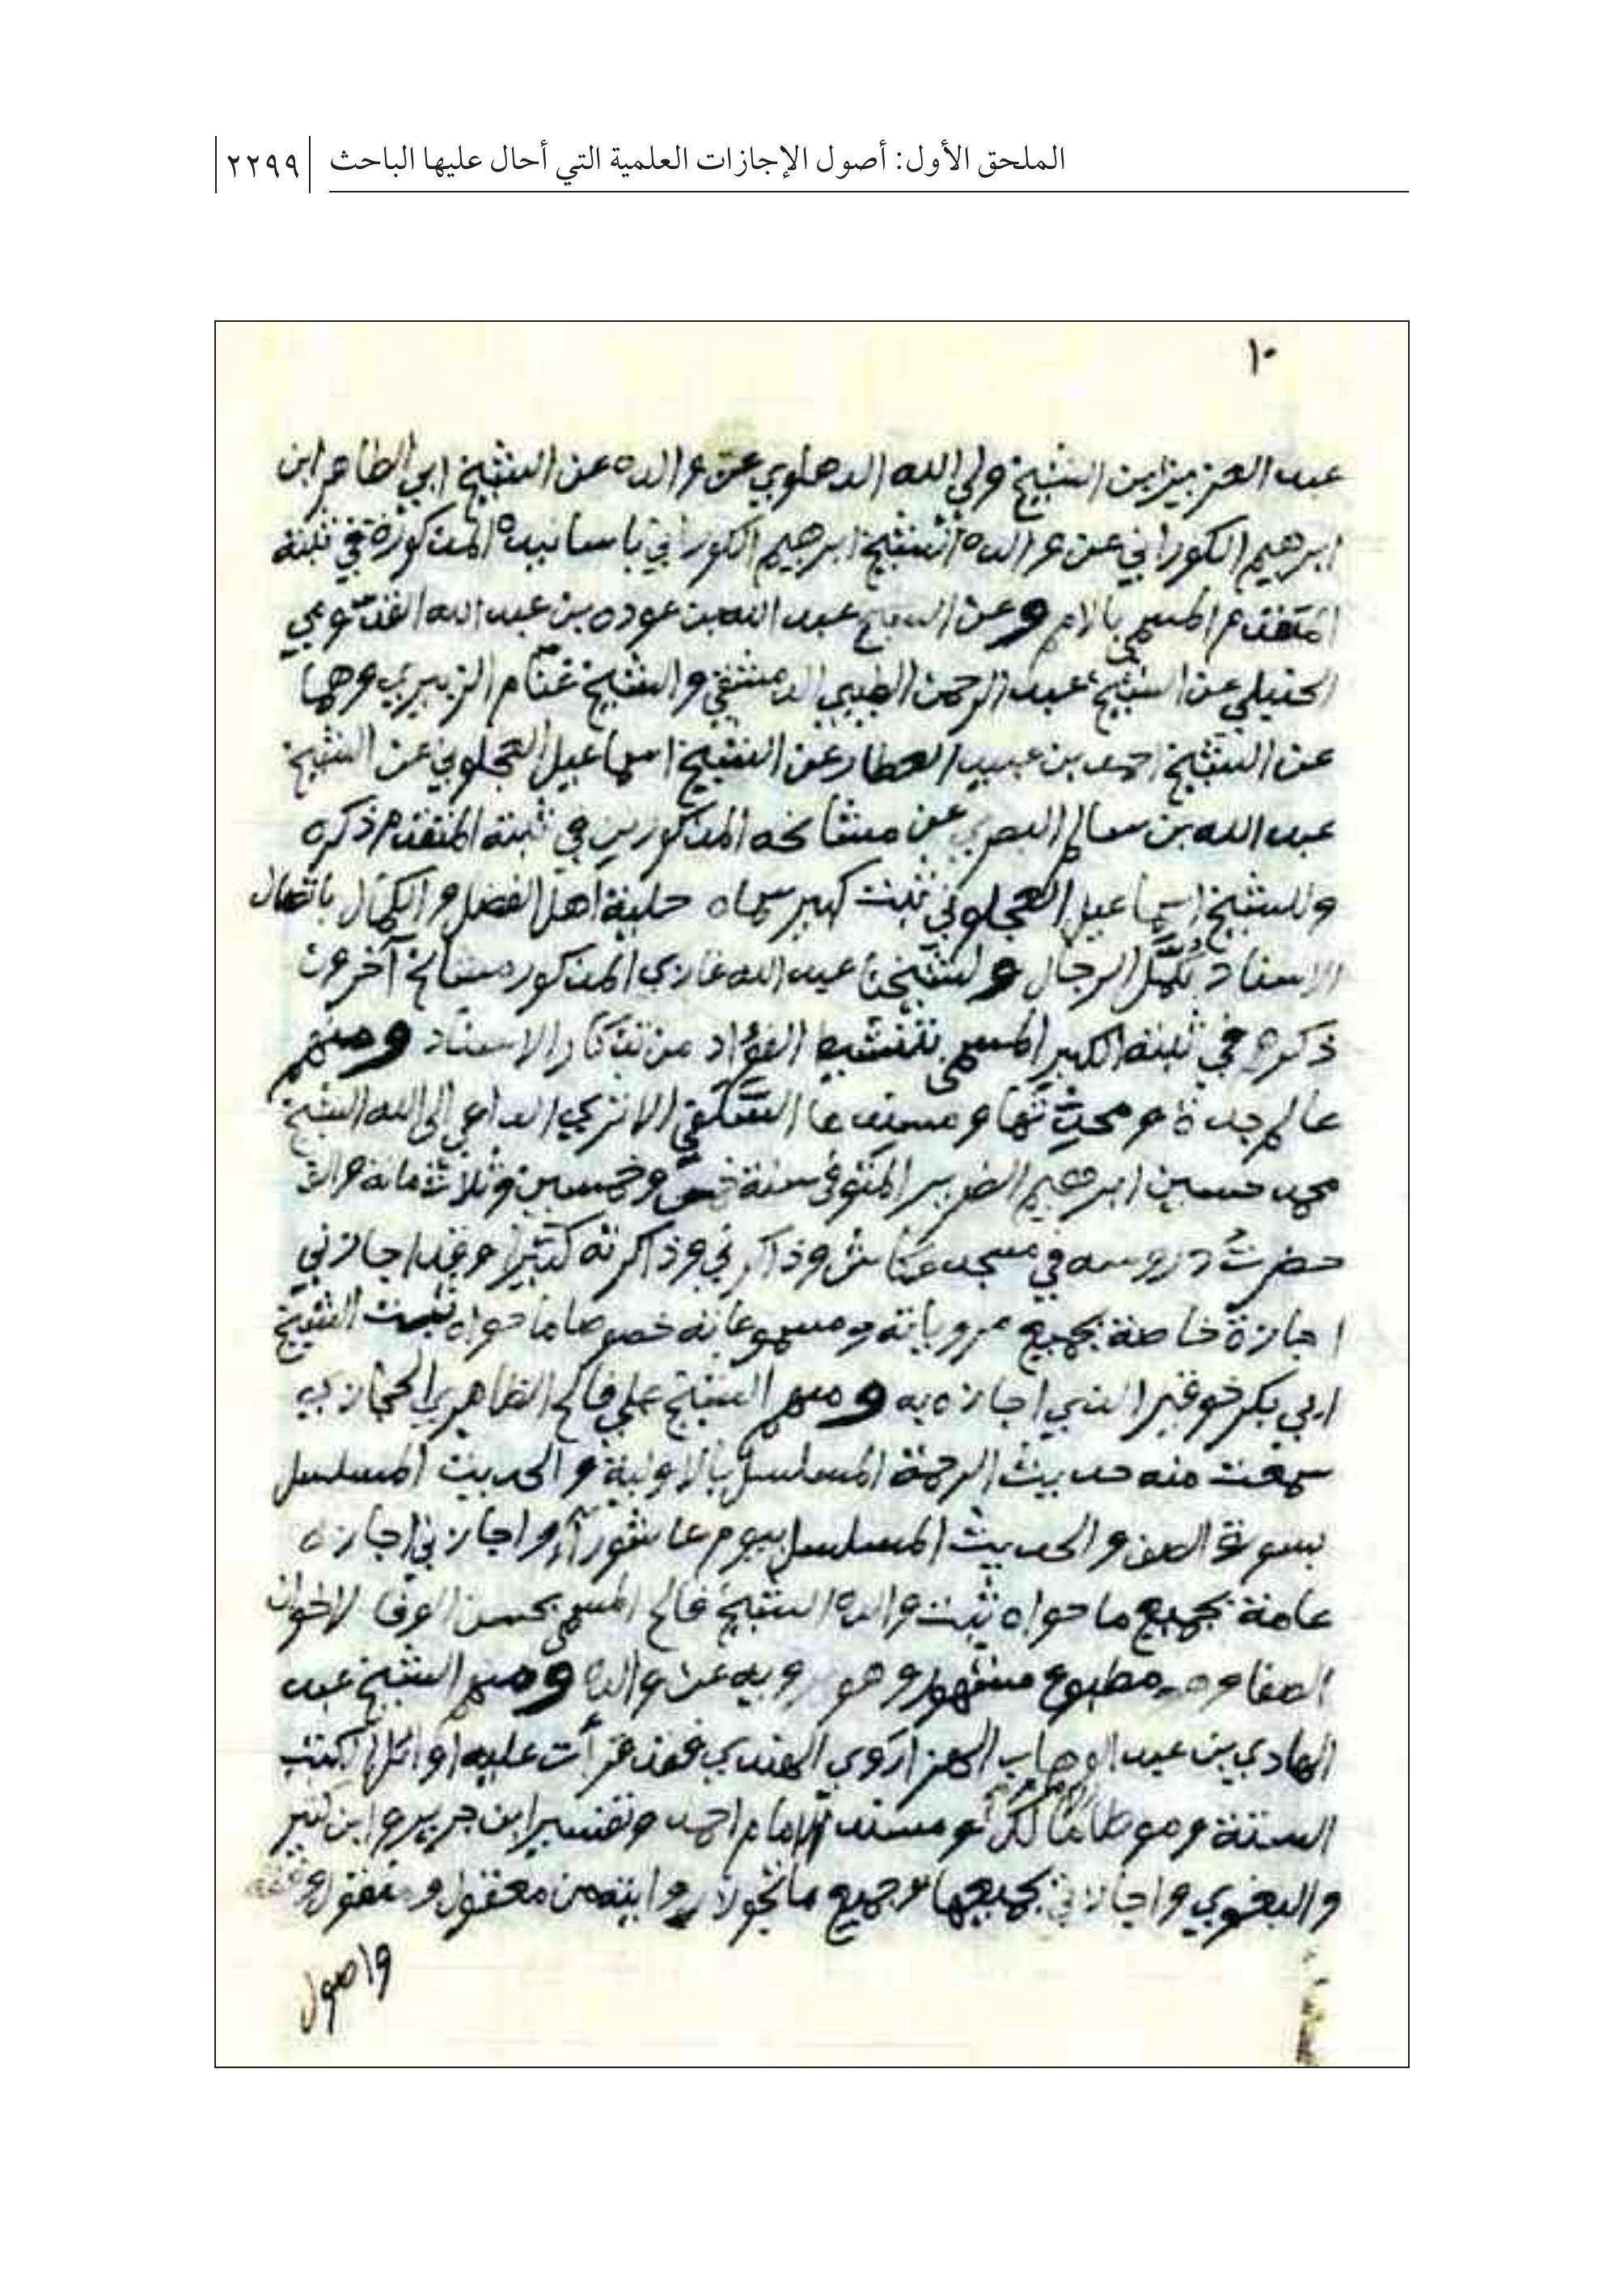 الملحق الأول: أصول الإجازات العلمية التي أحال عليها الباحث
٢٢٩٩
١٠
عبد العزيز ابن الشيخ ولي الله الدهلوي عن والده عن الشيخ ابي الطاهر ابن
ابرهيم الكوراني عن والده الشيخ ابرهيم الكوراني باسانيده المذكورة في ثبته
المتقدم المسمى بالامم وعن الشيخ عبد الله بن عوده بن عبد الله القدّومي
الحنبلي عن الشيخ عبد الرحمن الطيبي الدمشقي والشيخ غنّام الزبيري وهما
عن الشيخ احمد بن عبيد العطار عن الشيخ اسماعيل العجلوني عن الشيخ
عبد الله بن سالم البصري عن مشائخه المذكورين في ثبته المتقدم ذكره
وللشيخ اسماعيل العجلوني ثبت كبير سماه حلية اهل الفضل والكمال باتصال
الاسناد بكمّل الرجال ولشيخنا عبد الله غازي المذكور مشائخ آخرون
ذكرهم في ثبته الكبير المسمى تنشيط الفؤاد من تذكار الاسناد ومنهم
عالم جدة ومحدثها ومسندها السلفي الاثري الداعي الى الله الشيخ
محمد حسين ابرهيم الضرير المتوفى سنة خمس وخمسين وثلاثمائة والف
حضرتُ دروسه في مسجد عكاش وذاكرني وذاكرته كثيرا وقد اجازني
اجازة خاصة بجميع مروياته ومسموعاته خصوصا ما حواه ثبت الشيخ
ابي بكر خوقير الذي اجازه به ومنهم الشيخ علي فالح الظاهري الحجازي
سمعت منه حديث الرحمة المسلسل بالاولية والحديث المسلسل
بسورة الصف والحديث المسلسل بيوم عاشورآء واجازني اجازة
عامة بجميع ما حواه ثبت والده الشيخ فالح المسمى بحسن الوفا لاخوان
الصفا وهو مطبوع مشهور وهو يرويه عن والده ومنهم الشيخ عبد
الهادي بن عبد الوهاب الهزاروي الهندي فقد قرأت عليه اوائل الكتب
الستة وموطا مالك ومسند الامام احمد وتفسير ابن جرير وابن كثير
والبغوي واجازني بجميعها وجميع ما تجوز روايته من معقول ومنقول وفقه
واصول